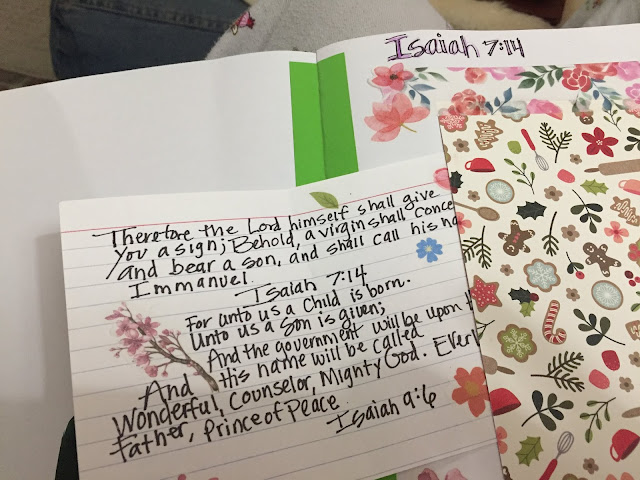 Isaiah 7:14
Therefore the Lord himself shall give
you a sign; Behold, a virgin shall
and bear a son, and shall call his
Immanuel.
Isaiah 7:14
For unto us a Child is born.
Unto us a Son is given;
And the government will be upon
And His name will be called
Wonderful, Counselor, Mighty God.
Father, Prince of Peace
Isaiah 9:6